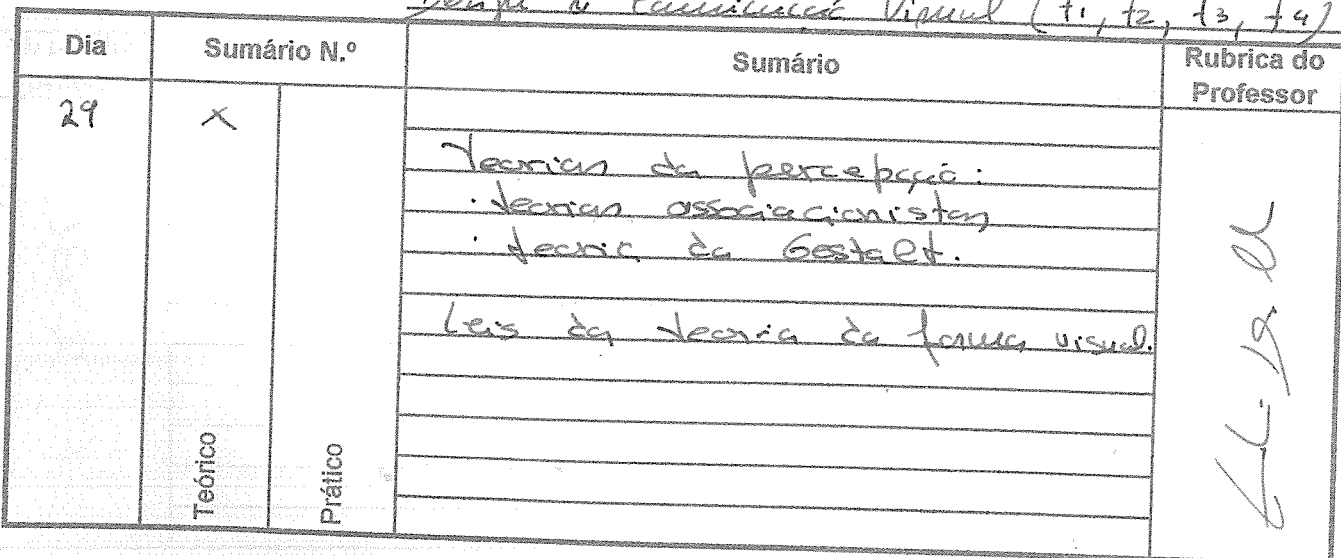 Design e Comunicação Visual (t1, t2, t3, t4)
Dia Sumário N.º Sumário Rubrica do Professor
29 X
Teorias da percepção:
· teorias associacionistas
· teoria da Gestalt.
Leis da teoria da forma visual.
Teórico
Prático